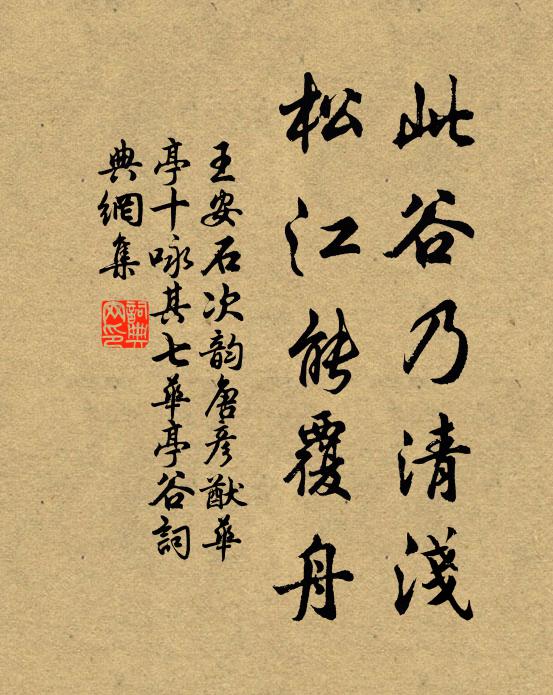 此谷乃清淺
松江能覆舟
王安石次韵唐彦猷華
亭十咏其七華亭谷詞
典網集
詞典
网印